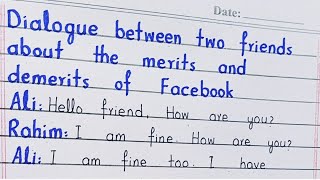 Date:
Dialogue between two friends
about the merits and
demerits of Facebook
Ali: Hello friend. How are you?
Rahim: I am fine. How are you?
Ali: I am fine too. I have